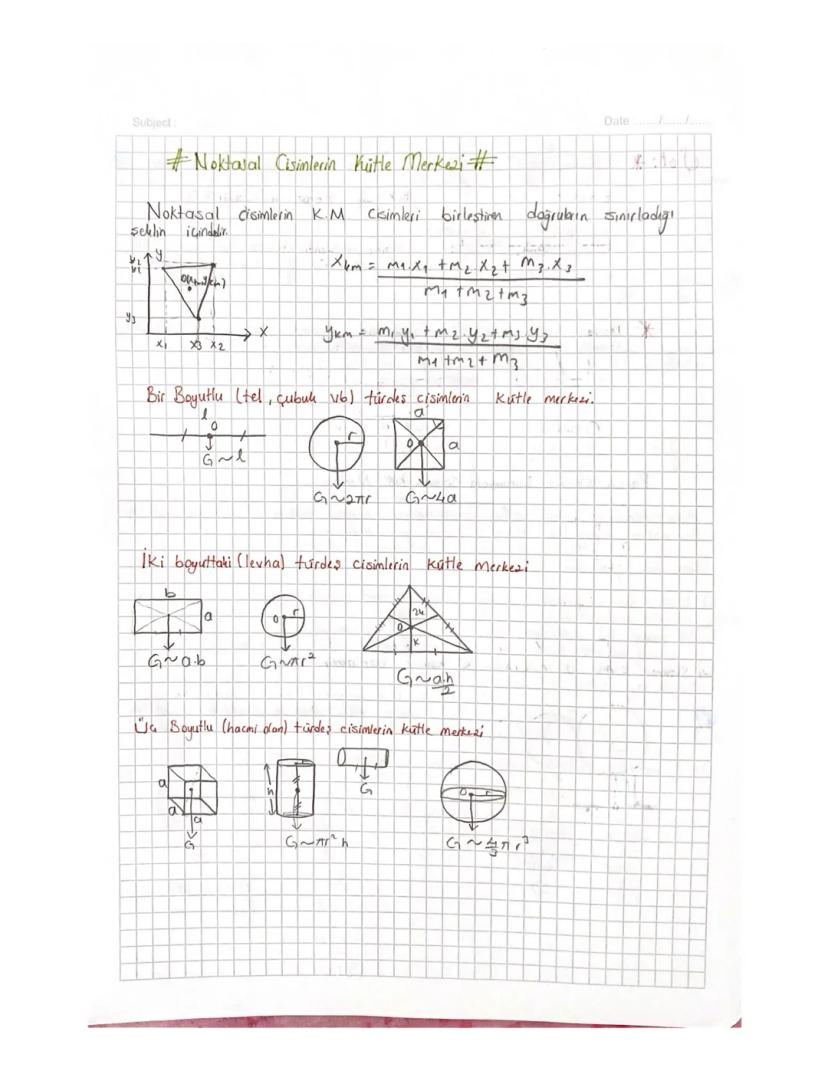 Subject :
Date ....../....../......
# Noktasal Cisimlerin Kütle Merkezi #
Noktasal cisimlerin K.M cisimleri birleştiren doğruların sınırladığı
şeklin içindedir.
y
y2
y1
O(xkm, ykm)
y3
x1 x3 x2 x
xkm = m1.x1 + m2.x2 + m3.x3
m1 + m2 + m3
ykm = m1 y1 + m2.y2 + m3.y3
m1 + m2 + m3
Bir Boyutlu (tel, çubuk vb) türdeş cisimlerin kütle merkezi.
l
O
G~l
r
G~2πr
a
O
a
G~4a
İki boyuttaki (levha) türdeş cisimlerin kütle merkezi
b
a
G~a.b
O r
G~πr²
2k
O
k
G~a.h
2
Üç Boyutlu (hacmi olan) türdeş cisimlerin kütle merkezi
a
a
a
G
h
G~πr²h
G
O r
G~4/3 πr³